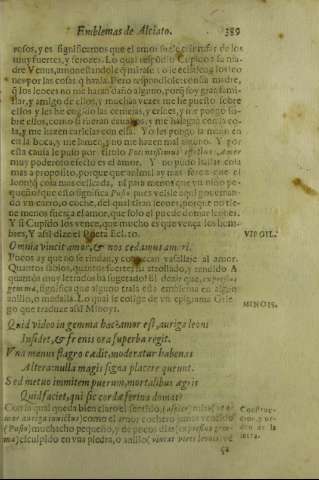 Emblemas de Alciato. 389
rosos, y es significarnos que el amor suele triunfar de los
muy fuertes, y feroces. Lo qual respõdio Cupido a su madre
Venus, amonestandole q̃ mirase
nes por las cosas q̃ hazia. Pero respondiole: cõfia madre,
q̃ los leones no me harã daño alguno, porq̃ soy gran fami-
liar, y amigo de ellos, y muchas vezes me he puesto sobre
ellos y les he cogido las cernejas, y crines, y me pongo so-
bre ellos, como si fueran cauallos, y me halagan con la co-
la, y me hazen caricias con ella. Yo les pongo la mano en
en la boca, y me lamen, y no me hazen mal ninguno. Y por
esta causa le puso por titulo Potentissimus affectus, Amor
muy poderoso efecto es el amor. Y no pudo hallar cosa
mas a proposito, porque que animal ay mas feroz que el
leon? q̃ cosa mas delicada, ni para menos que vn niño pe-
queño? que esto significa Pusio, pues veisle aqui gouernan-
do vn carro, o coche, del qual tiran leones, porque no tie-
ne menos fuerça el amor, que solo el puede domar leones.
Y si Cupido los vence, que mucho es que vença los hom-
bres, Y assi dize el Poeta VIRGIL.
Omnia vincit amor, & nos cedamus amori.
Pocos ay que no se rindan, y conozcan vasallaje al amor.
Quantos sabios, quantos fuertes ha atrollado, y rendido A
quantos muy letrados ha sugetado? El dezir que, expressus
gemma, significa que alguno traia esta emblema en algun
anillo, o medalla. Lo qual se colige de vn epigrama Grie-
go que traduze assi Minoys. MINOIS.
Quid video in gemma hac? amor est, auriga leoni
Insidet, & frenis ora superba regit.
Vna manus flagro cædit, moderatur habenas
Altera: nulla magis signa placere queunt.
Sed metuo immitem puerum, mortalibus ægris
Quid faciet, qui sic corda ferina domat?
Con la qual queda bien claro el sentido, (aspice)
mor auriga inuictus) como el amor cochero jamas vencido
(Pusio) muchacho pequeño, y de pocos dias (expressus gem-
ma) esculpido en vna piedra, o anillo (
Construc-
cion, y or-
den de la
letra.